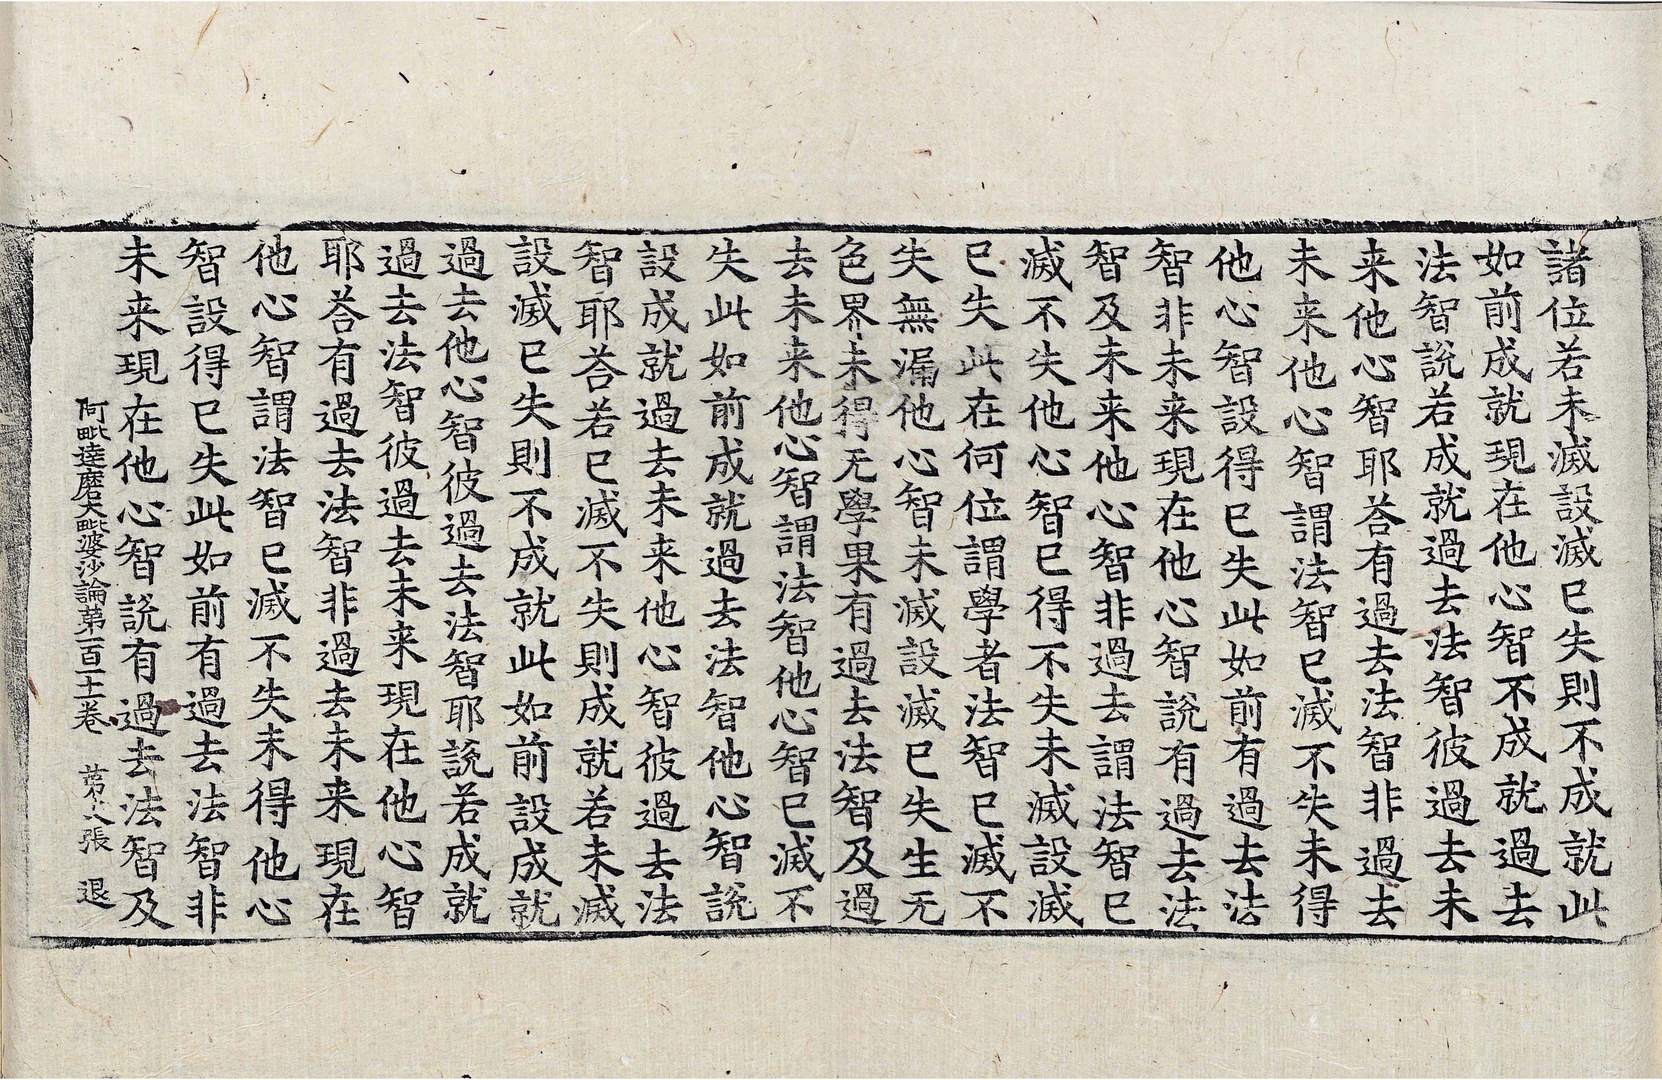 諸位若未滅設滅已失則不成就此
如前成就現在他心智不成就過去
法智說若成就過去法智彼過去未
来他心智耶荅有過去法智非過去
未来他心智謂法智已滅不失未得
他心智設得已失此如前有過去法
智非未来現在他心智說有過去法
智及未来他心智非過去謂法智已
滅不失他心智已得不失未滅設滅
已失此在何位謂學者法智已滅不
失無漏他心智未滅設滅已失生无
色界未得无學果有過去法智及過
去未来他心智謂法智他心智已滅不
失此如前成就過去法智他心智說
設成就過去未来他心智彼過去法
智耶荅若已滅不失則成就若未滅
設滅已失則不成就此如前設成就
過去他心智彼過去法智耶說若成就
過去法智彼過去未来現在他心智
耶荅有過去法智非過去未来現在
他心智謂法智已滅不失未得他心
智設得已失此如前有過去法智非
未来現在他心智說有過去法智及
阿毗達磨大毗婆沙論苐一百一十卷 苐 張 退